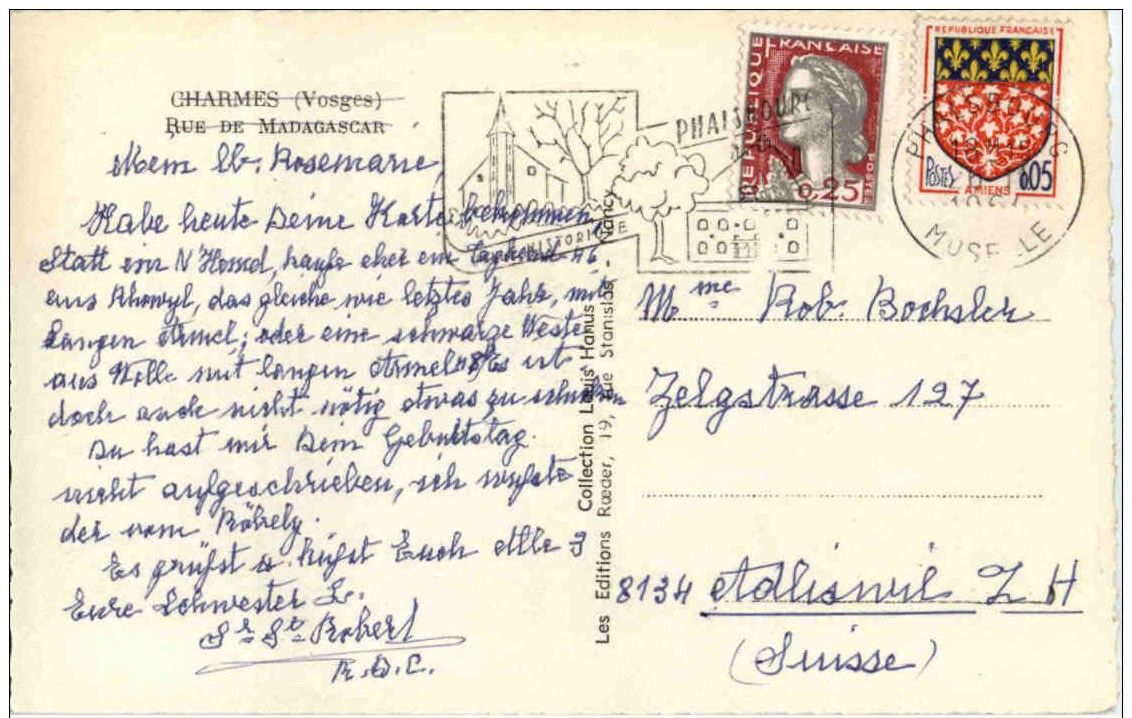 CHARMES (Vosges)
RUE DE MADAGASCAR
Mein lb. Rosemarie
Habe heute Deine Karte bekommen
Statt ein N'Hemd, kaufe eher ein
aus Rhowyl, das gleiche wie letztes Jahr, mit
langen Ärmel; oder eine schwarze Weste
aus Wolle mit langen Ärmel 48 Es ist
doch auch nicht nötig etwas zu
Du hast mir Dein Geburtstag
nicht aufgeschrieben, ich wusste
der vom Röbely.
Es grüsst u. küsst Euch Alle 3
Eure Schwester L.
Sr St Robert
R.D.C.
Collection Louis Hanus
Les Editions Rœder, 19, rue Stanislas, Nancy
PHALSBOURG
HISTORIQUE
REPUBLIQUE FRANÇAISE
0,25
POSTES
REPUBLIQUE FRANÇAISE
POSTES
0,05
AMIENS
PHALSBOURG
MOSELLE
Mme Rob. Bochsler
Zelgstrasse 127
8134 Adliswil Z H
(Suisse)